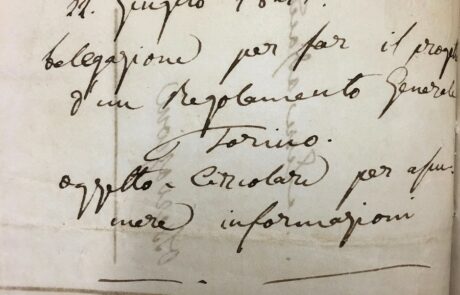 22. Giugno
Delegazione per far il proge
d'un Regolamento Generale
Torino.
oggetto - Circolare per assu-
mere informazioni